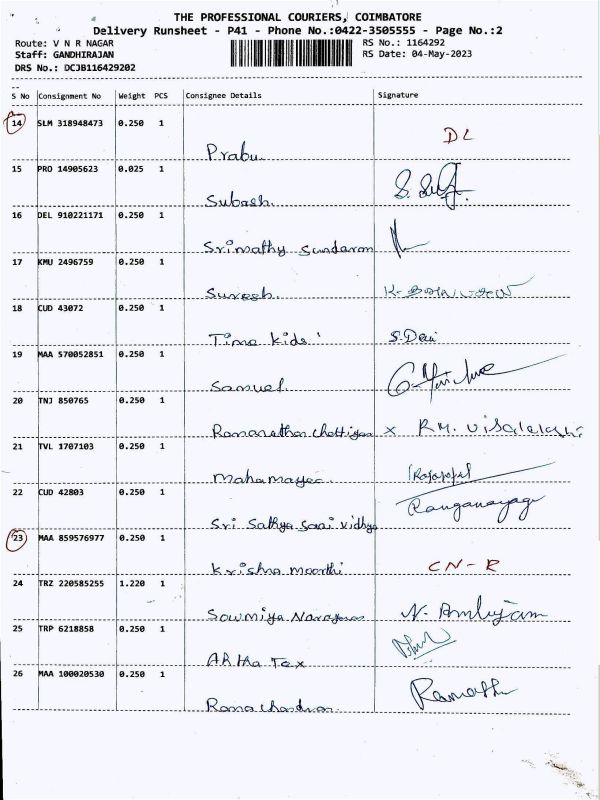 THE PROFESSIONAL COURIERS, COIMBATORE
Delivery Runsheet - P41 - Phone No.:0422-3505555 - Page No.:2
Route: V N R NAGAR RS No.: 1164292
Staff: GANDHIRAJAN RS Date: 04-May-2023
DRS No.: DCJB116429202
S No Consignment No Weight PCS Consignee Details Signature
14 SLM 318948473 0.250 1
Prabu DL
15 PRO 14905623 0.025 1
Subash
16 DEL 910221171 0.250 1
Srimathy Sundaram
17 KMU 2496759 0.250 1
Suresh
18 CUD 43072 0.250 1
Time kids S.Devi
19 MAA 570052851 0.250 1
Samuel
20 TNJ 850765 0.250 1
Ramanathan Chettiyar x RM. Visalakshi
21 TVL 1707103 0.250 1
Mahamayee Rajagopal
22 CUD 42803 0.250 1
Sri Sathya Saai Vidhya Ranganayagi
23 MAA 859576977 0.250 1
Krishna moorthi CN-R
24 TRZ 220585255 1.220 1
Sowmiya Narayanan N. Ambujam
25 TRP 6218858 0.250 1
Artha Tex
26 MAA 100020530 0.250 1
Rama chandran